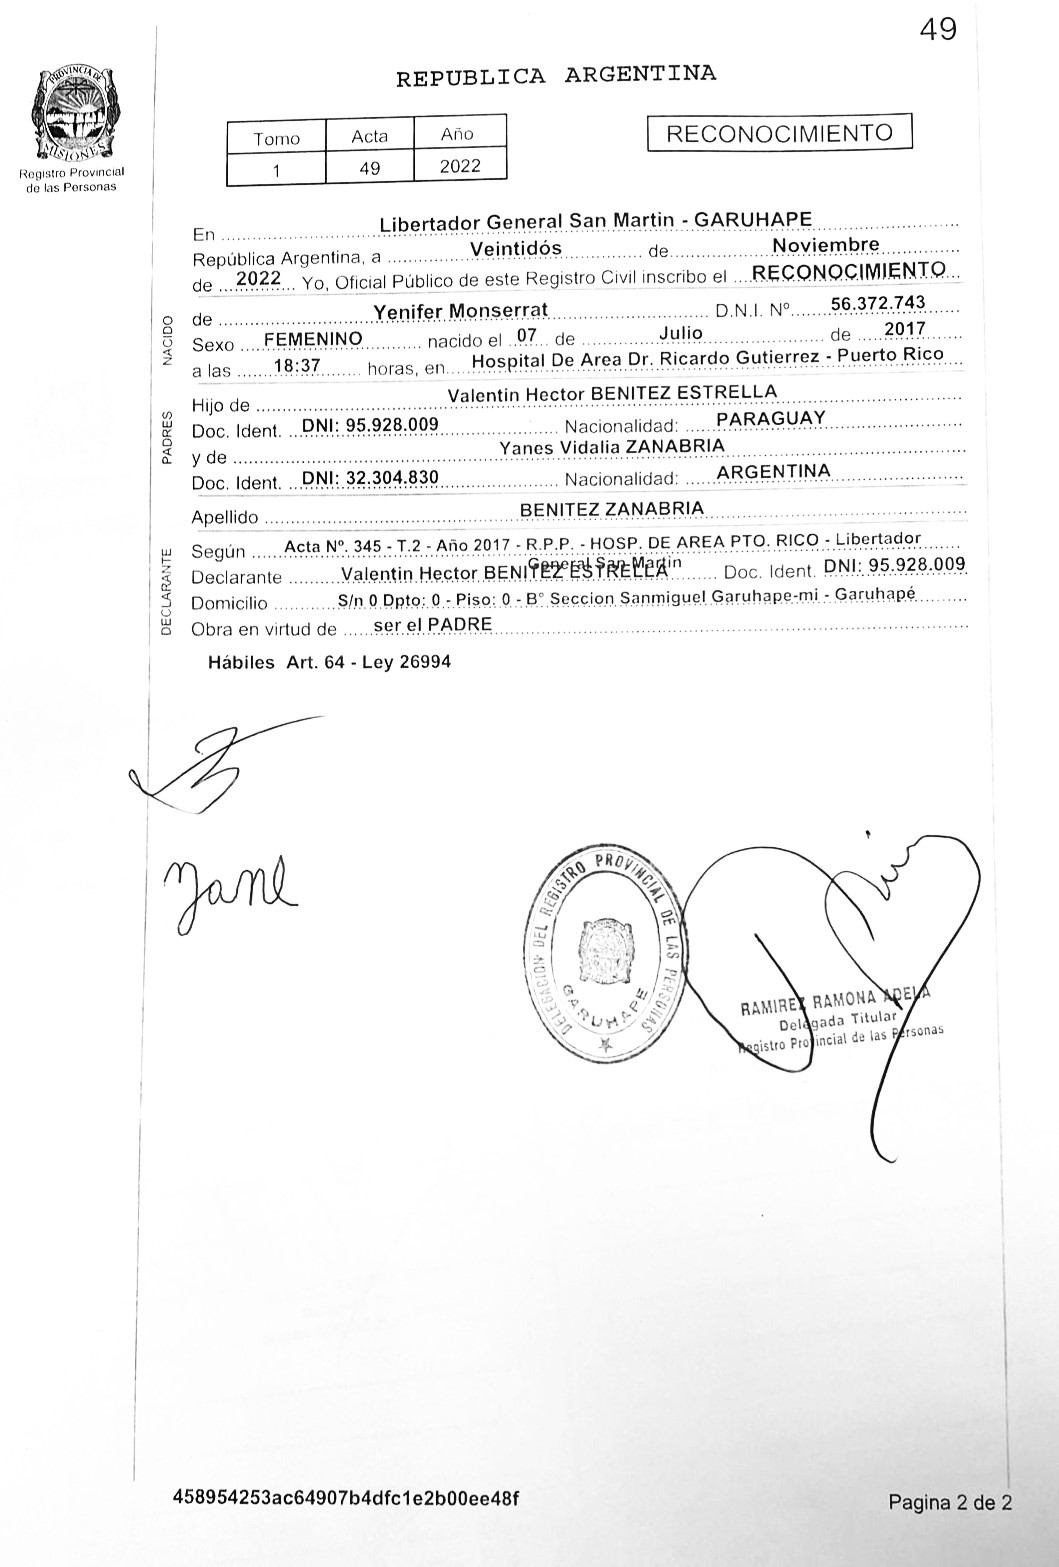 49
PROVINCIA DE
MISIONES
Registro Provincial
de las Personas
REPUBLICA ARGENTINA
Tomo Acta Año
1 49 2022
RECONOCIMIENTO
En Libertador General San Martin - GARUHAPE
República Argentina, a Veintidós de Noviembre
de 2022 Yo, Oficial Público de este Registro Civil inscribo el RECONOCIMIENTO
NACIDO
de Yenifer Monserrat D.N.I. Nº 56.372.743
Sexo FEMENINO nacido el 07 de Julio de 2017
a las 18:37 horas, en Hospital De Area Dr. Ricardo Gutierrez - Puerto Rico
PADRES
Hijo de Valentin Hector BENITEZ ESTRELLA
Doc. Ident. DNI: 95.928.009 Nacionalidad: PARAGUAY
y de Yanes Vidalia ZANABRIA
Doc. Ident. DNI: 32.304.830 Nacionalidad: ARGENTINA
Apellido BENITEZ ZANABRIA
DECLARANTE
Según Acta Nº. 345 - T.2 - Año 2017 - R.P.P. - HOSP. DE AREA PTO. RICO - Libertador
General San Martin
Declarante Valentin Hector BENITEZ ESTRELLA Doc. Ident. DNI: 95.928.009
Domicilio S/n 0 Dpto: 0 - Piso: 0 - B° Seccion Sanmiguel Garuhape-mi - Garuhapé
Obra en virtud de ser el PADRE
Hábiles Art. 64 - Ley 26994
DELEGACION DEL REGISTRO PROVINCIAL DE LAS PERSONAS
GARUHAPE
RAMIREZ RAMONA ADELA
Delegada Titular
Registro Provincial de las Personas
458954253ac64907b4dfc1e2b00ee48f
Pagina 2 de 2